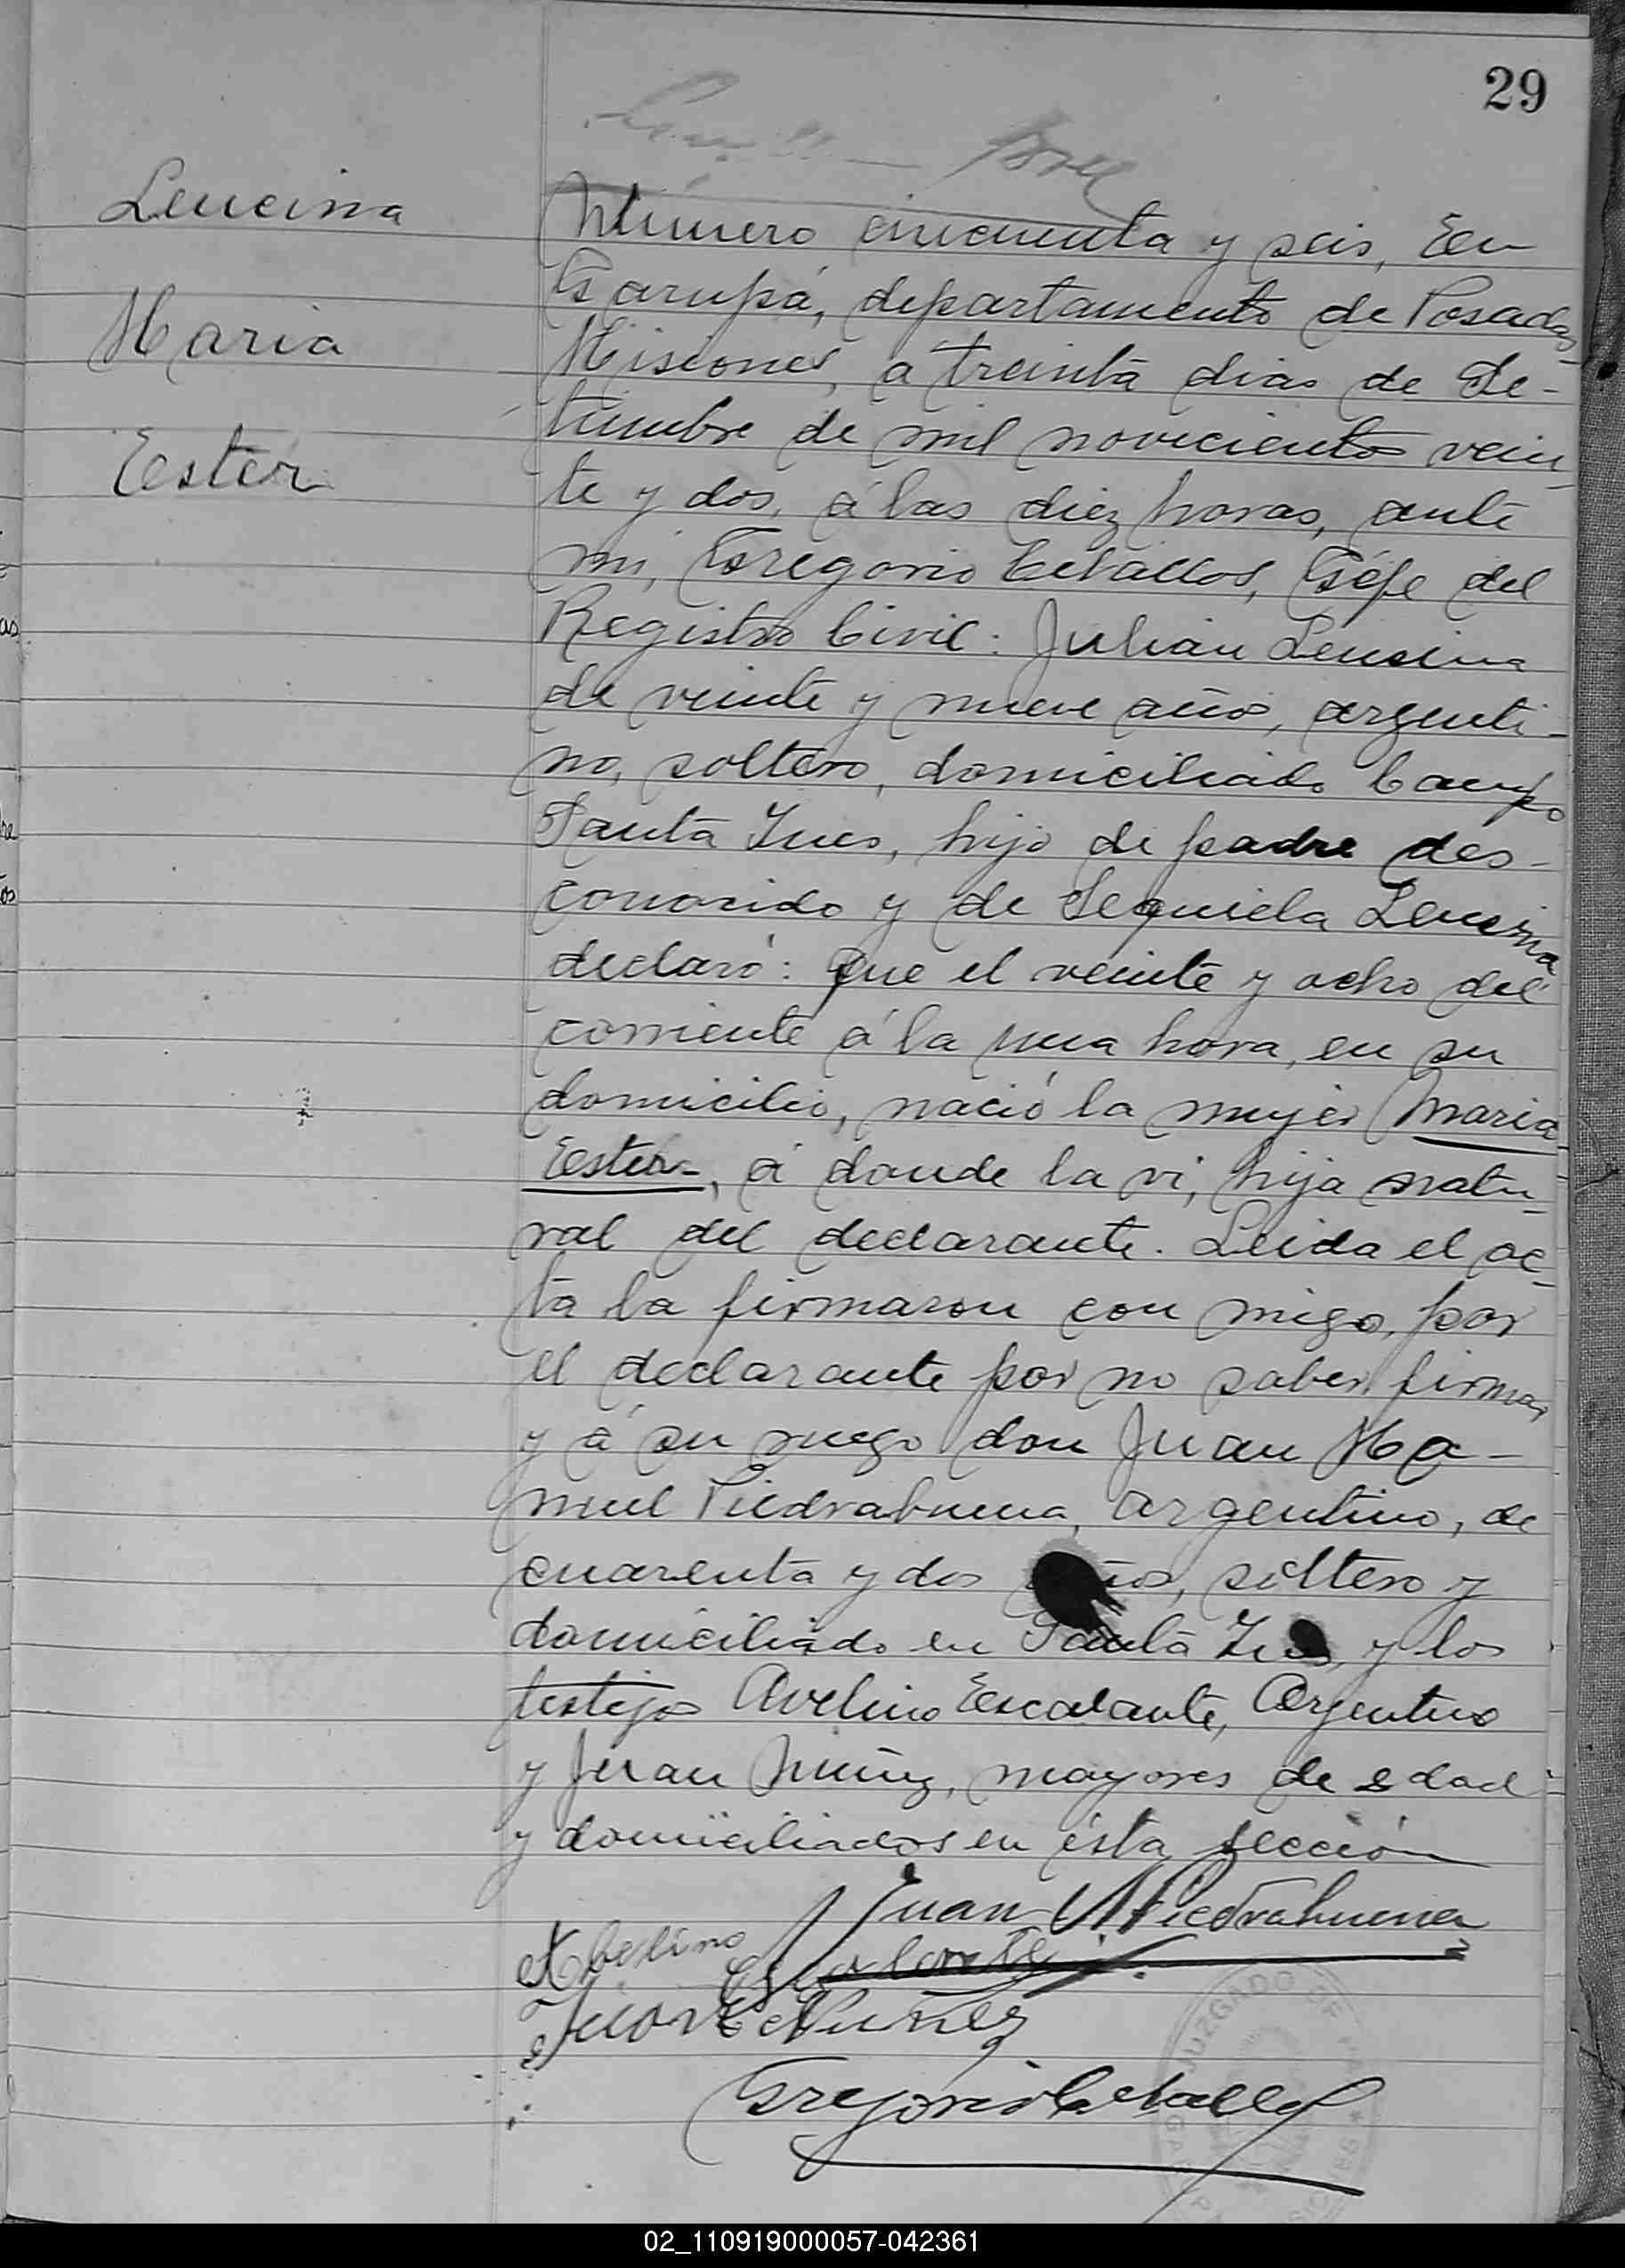 29
Leucina
Maria
Ester
Número cincuenta y seis, En
Garupá, departamento de Posadas
Misiones, a treinta dias de Se-
tiembre de mil novecientos vein-
te y dos, á las diez horas, ante
mi, Gregorio Ceballos, Géfe del
Registro Civil: Julian Leucina
de veinte y nueve años, argenti-
no, soltero, domiciliado Campo
Santa Ines, hijo de padre des-
conocido y de Sequiela Leucina
declaró: Que el veinte y ocho del
corriente á la una hora, en su
domicilio, nació la mujer Maria
Ester, á donde la vi, hija natu-
ral del declarante. Leida el ac-
ta la firmaron con migo, por
el declarante por no saber firmar
y á su ruego don Juan Ma-
nuel Piedrabuena, argentino, de
cuarenta y dos años, soltero y
domiciliado en Santa Ines, y los
testigos Avelino Escalante, Argentino
y Juan Nuñez, mayores de edad
y domiciliados en ésta sección
Juan M Piedrabuena
Abelino Escalante
Juan Nuñez
Gregorio Ceballos
JUZGADO DE PAZ
02_110919000057-042361